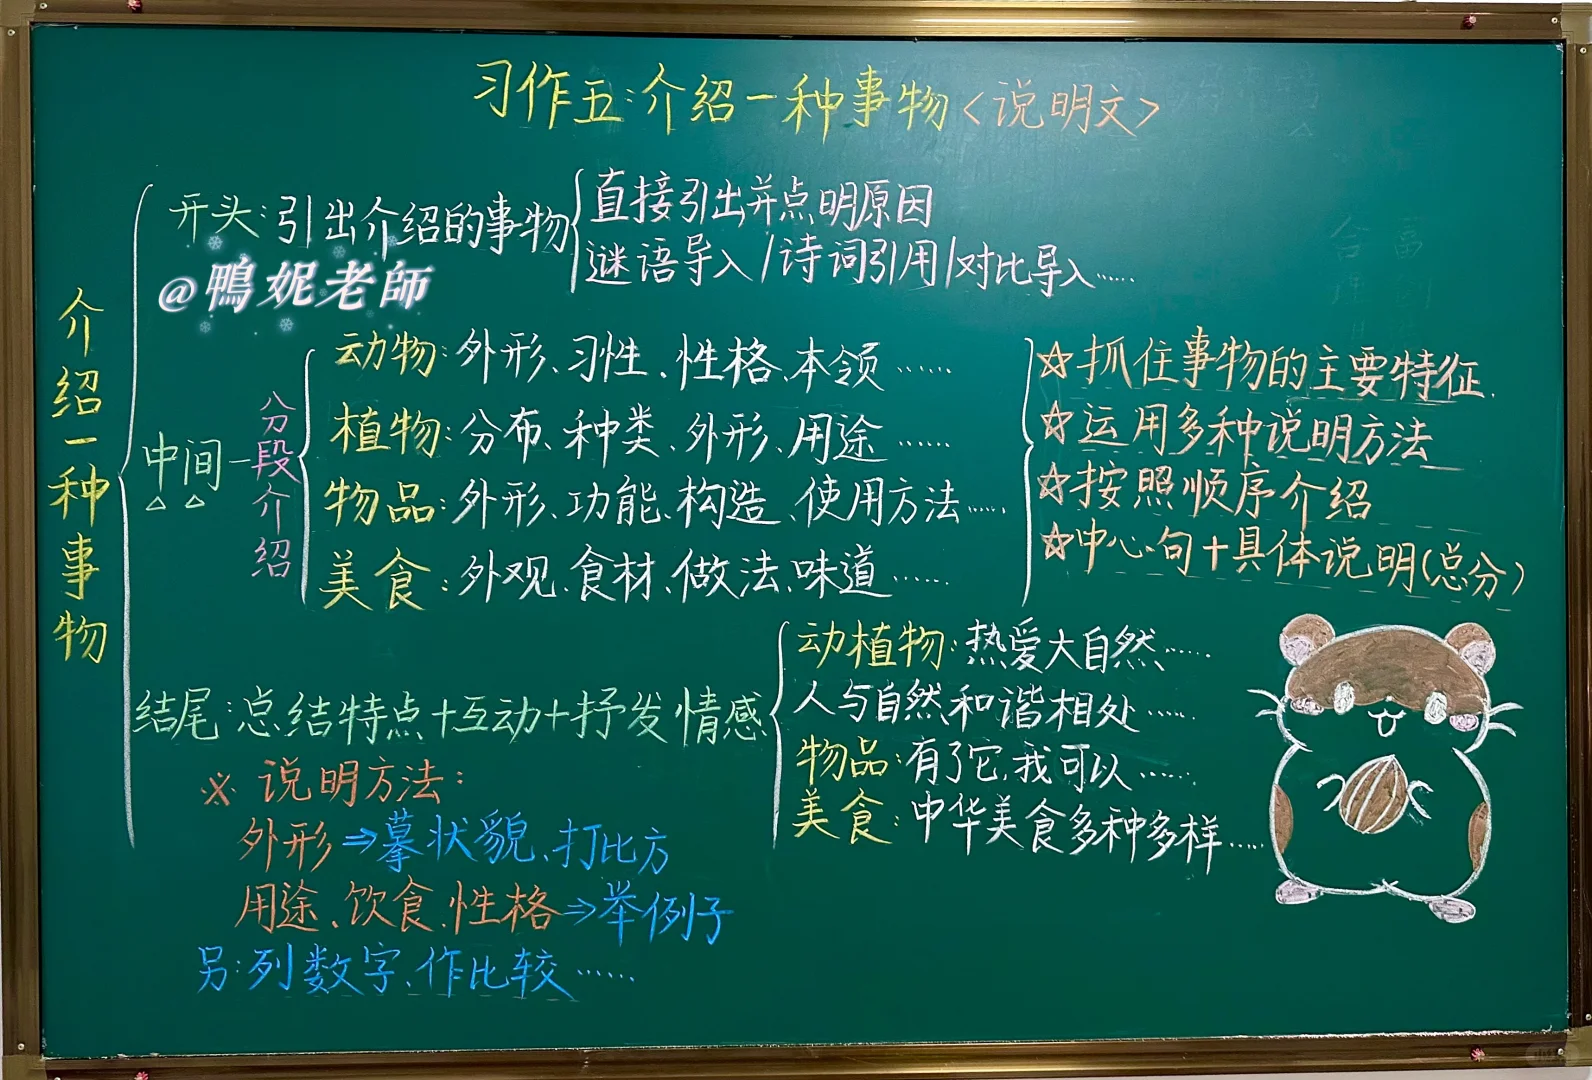 习作五:介绍一种事物<说明文>
介绍一种事物
开头:引出介绍的事物
直接引出并点明原因
谜语导入/诗词引用/对比导入……
@鴨妮老師
中间—分段介绍
动物:外形、习性、性格、本领……
植物:分布、种类、外形、用途……
物品:外形、功能、构造、使用方法……
美食:外观、食材、做法、味道……
☆抓住事物的主要特征.
☆运用多种说明方法
☆按照顺序介绍
☆中心句+具体说明(总分)
结尾:总结特点+互动+抒发情感
动植物:热爱大自然……
人与自然和谐相处……
物品:有了它,我可以……
美食:中华美食多种多样……
※说明方法:
外形⇒摹状貌、打比方
用途、饮食、性格⇒举例子
另:列数字、作比较……